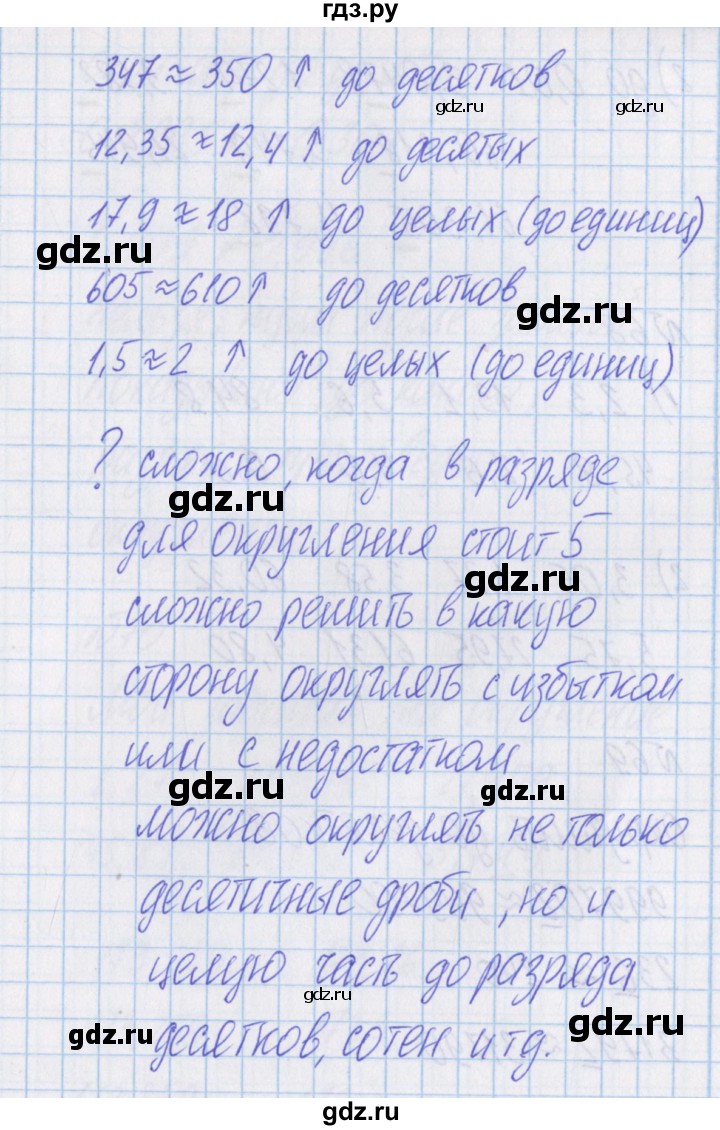 гдз.ру
347 ≈ 350 ↑ до десятков
gdz.ru gdz.ru
12,35 ≈ 12,4 ↑ до десятых
17,9 ≈ 18 ↑ до целых (до единиц)
gdz.ru
605 ≈ 610 ↑ до десятков
gdz.ru
1,5 ≈ 2 ↑ до целых (до единиц)
? сложно, когда в разряде
gdz.ru
для округления стоит 5
gdz.ru
сложно решить в какую
сторону округлять с избытком
или с недостатком
gdz.ru gdz.ru
можно округлять не только
десятичные дроби, но и
целую часть до разряда
gdz.ru
gdz.ru gdz.ru
десятков, сотен и тд.
gdz.ru